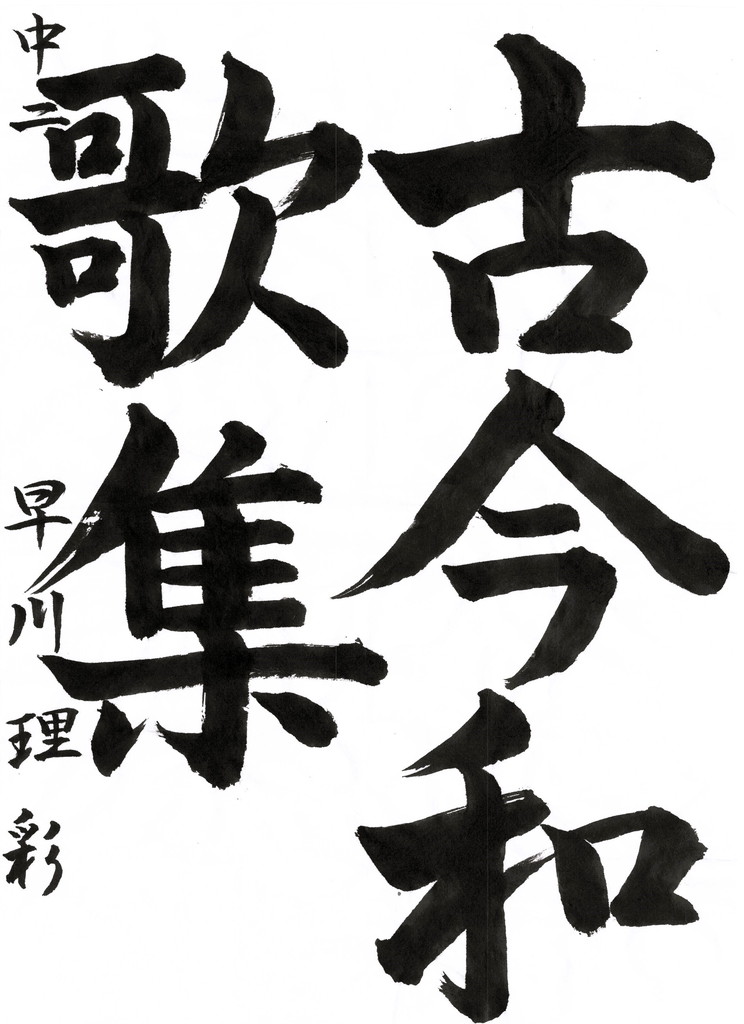 古今和
歌集
中二 早川理彩